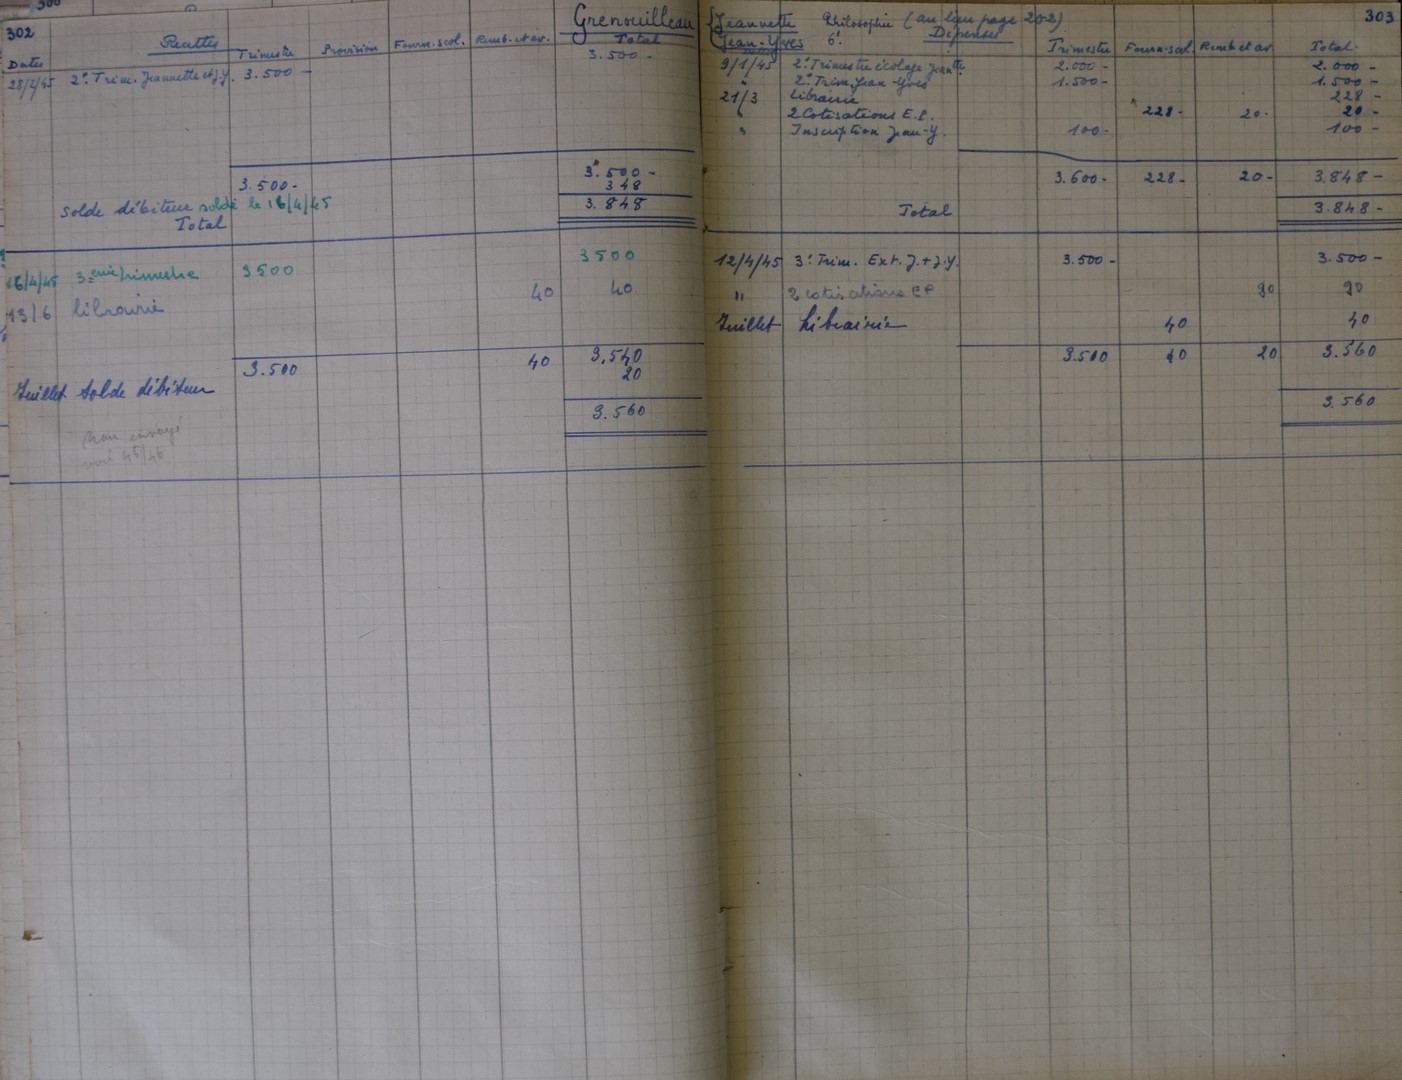 302
Grenouilleau
Recettes
Dates Trimestre Provision Fourn. scol. Remb. et av. Total
3.500 -
28/2/45 2e Trim. Jeannette et J.Y. 3.500 -
3.500 - 3.500 -
348
Solde débiteur soldé le 16/4/45 3.848
Total
16/4/45 3eme trimestre 3500 3500
13/6 librairie 40 40
3.500 40 3.540
Juillet Solde débiteur 20
3.560
45/46
Jeannette Philosophie (au lieu page 202) 303
Jean-Yves 6e
Dépenses
Trimestre Fourn. scol. Remb et av Total
9/1/45 2e Trimestre écolage Jeantte 2.000 - 2.000 -
" 2e Trim. Jean-Yves 1.500 - 1.500 -
21/3 Librairie 228 -
" 2 Cotisations E.P. 228 - 20 - 20 -
" Inscription Jean-Y. 100 - 100 -
3.600 - 228 - 20 - 3.848 -
Total 3.848 -
12/4/45 3e Trim. Ext. J. + J.Y. 3.500 - 3.500 -
" 2 cotisations EP 20 20
Juillet Librairie 40 40
3.500 40 20 3.560
3.560